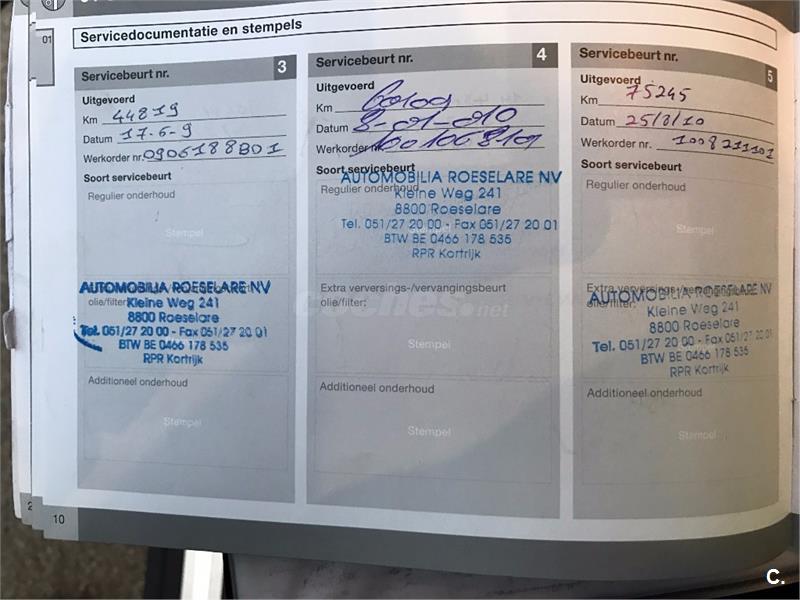 01
Servicedocumentatie en stempels
Servicebeurt nr. 3
Uitgevoerd
Km 44819
Datum 17-6-9
Werkorder nr. 0906188B01
Soort servicebeurt
Regulier onderhoud
Stempel
AUTOMOBILIA ROESELARE NV
olie/filter:
Kleine Weg 241
8800 Roeselare
Tel. 051/27 20 00 - Fax 051/27 20 01
BTW BE 0466 178 535
RPR Kortrijk
Additioneel onderhoud
Stempel
Servicebeurt nr. 4
Uitgevoerd
Km
Datum
Werkorder nr.
Soort servicebeurt
AUTOMOBILIA ROESELARE NV
Regulier onderhoud
Kleine Weg 241
8800 Roeselare
Tel. 051/27 20 00 - Fax 051/27 20 01
BTW BE 0466 178 535
RPR Kortrijk
Extra verversings-/vervangingsbeurt
olie/filter:
coches.net
Stempel
Additioneel onderhoud
Stempel
Servicebeurt nr. 5
Uitgevoerd
Km 75245
Datum 25/8/10
Werkorder nr. 1008211101
Soort servicebeurt
Regulier onderhoud
Stempel
Extra verversings-/
AUTOMOBILIA ROESELARE NV
olie/filter:
Kleine Weg 241
8800 Roeselare
Tel. 051/27 20 00 - Fax 051/27 20 01
BTW BE 0466 178 535
RPR Kortrijk
Additioneel onderhoud
Stempel
2
10
C.